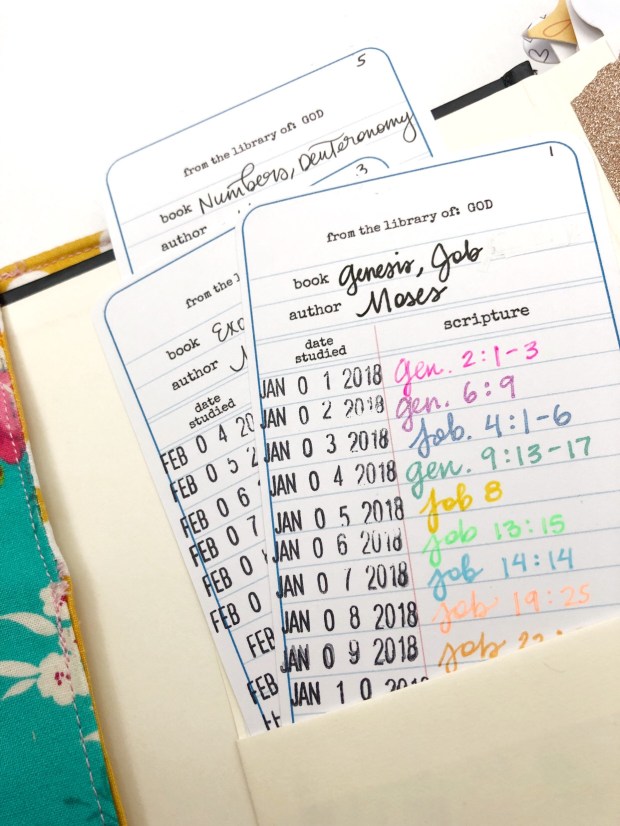 5
from the library of: GOD
book Numbers, Deuteronomy
author
3
from the
book
author
date
studied
FEB 0 4 20
FEB 0 5 2
FEB 0 6
FEB 0 7
FEB 0
FEB 0
FEB
FEB
1
from the library of: GOD
book Genesis, Job
author Moses
date studied scripture
JAN 0 1 2018 gen. 2:1-3
JAN 0 2 2018 gen. 6:9
JAN 0 3 2018 Job. 4:1-6
JAN 0 4 2018 gen. 9:13-17
JAN 0 5 2018 job 8
JAN 0 6 2018 job 13:15
JAN 0 7 2018 job 14:14
JAN 0 8 2018 job 19:25
JAN 0 9 2018 job
JAN 1 0